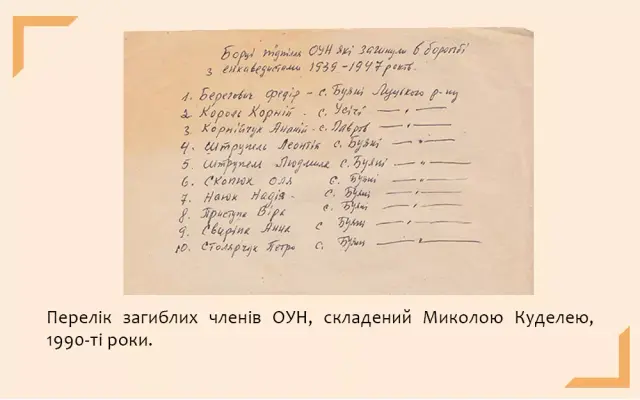 Борці підпілля ОУН які загинули в боротьбі
з енкаведистами 1939-1947 років.
1. Березович Федір - с. Буяні Луцького р-ну
2. Король Корній - с. Усічі — " —
3. Корнійчук Ананій - с. Лаврів — " —
4. Штрупель Леонтій с. Буяні — " —
5. Штрупель Людмила с. Буяні — " —
6. Скопюк Оля с. Буяні — " —
7. Наюк Надія - с. Буяні — " —
8. Приступа Віра с. Буяні — " —
9. Свиріпа Анна с. Буяні — " —
10. Столярчук Петро с. Буяні — " —
Перелік загиблих членів ОУН, складений Миколою Куделею,
1990-ті роки.